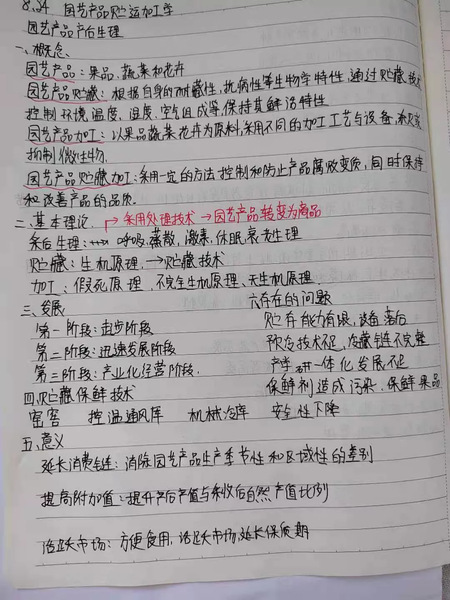 8.24 园艺产品贮运加工学
园艺产品产后生理
一、概念
园艺产品:果品、蔬菜和花卉
园艺产品贮藏:根据自身的耐藏性,抗病性等生物学特性,通过贮藏技术
控制环境温度、湿度、空气组成等,保持其鲜活特性
园艺产品加工:以果品蔬菜花卉为原料,采用不同的加工工艺与设备,杀灭或
抑制微生物.
园艺产品贮藏加工:采用一定的方法控制和防止产品腐败变质,同时保持
和改善产品的品质.
二、基本理论. →采用处理技术→园艺产品转变为商品
采后生理: 呼吸,蒸散,激素,休眠衰老生理
贮藏:生机原理.→贮藏技术
加工:假死原理、不完全生机原理、无生机原理.
三、发展 六存在的问题
第一阶段:起步阶段 贮存能力有限,设备落后
第二阶段:迅速发展阶段 预冷技术不足,冷藏链不完整
第三阶段:产业化经营阶段. 产学研一体化发展不足
四、贮藏保鲜技术 保鲜剂造成污染,保鲜果品
窑窖 控温通风库 机械冷库 安全性下降
五、意义
延长消费链:消除园艺产品生产季节性和区域性的差别
提高附加值:提升产后产值与采收后自然产值比例
活跃市场:方便食用,活跃市场,延长保质期